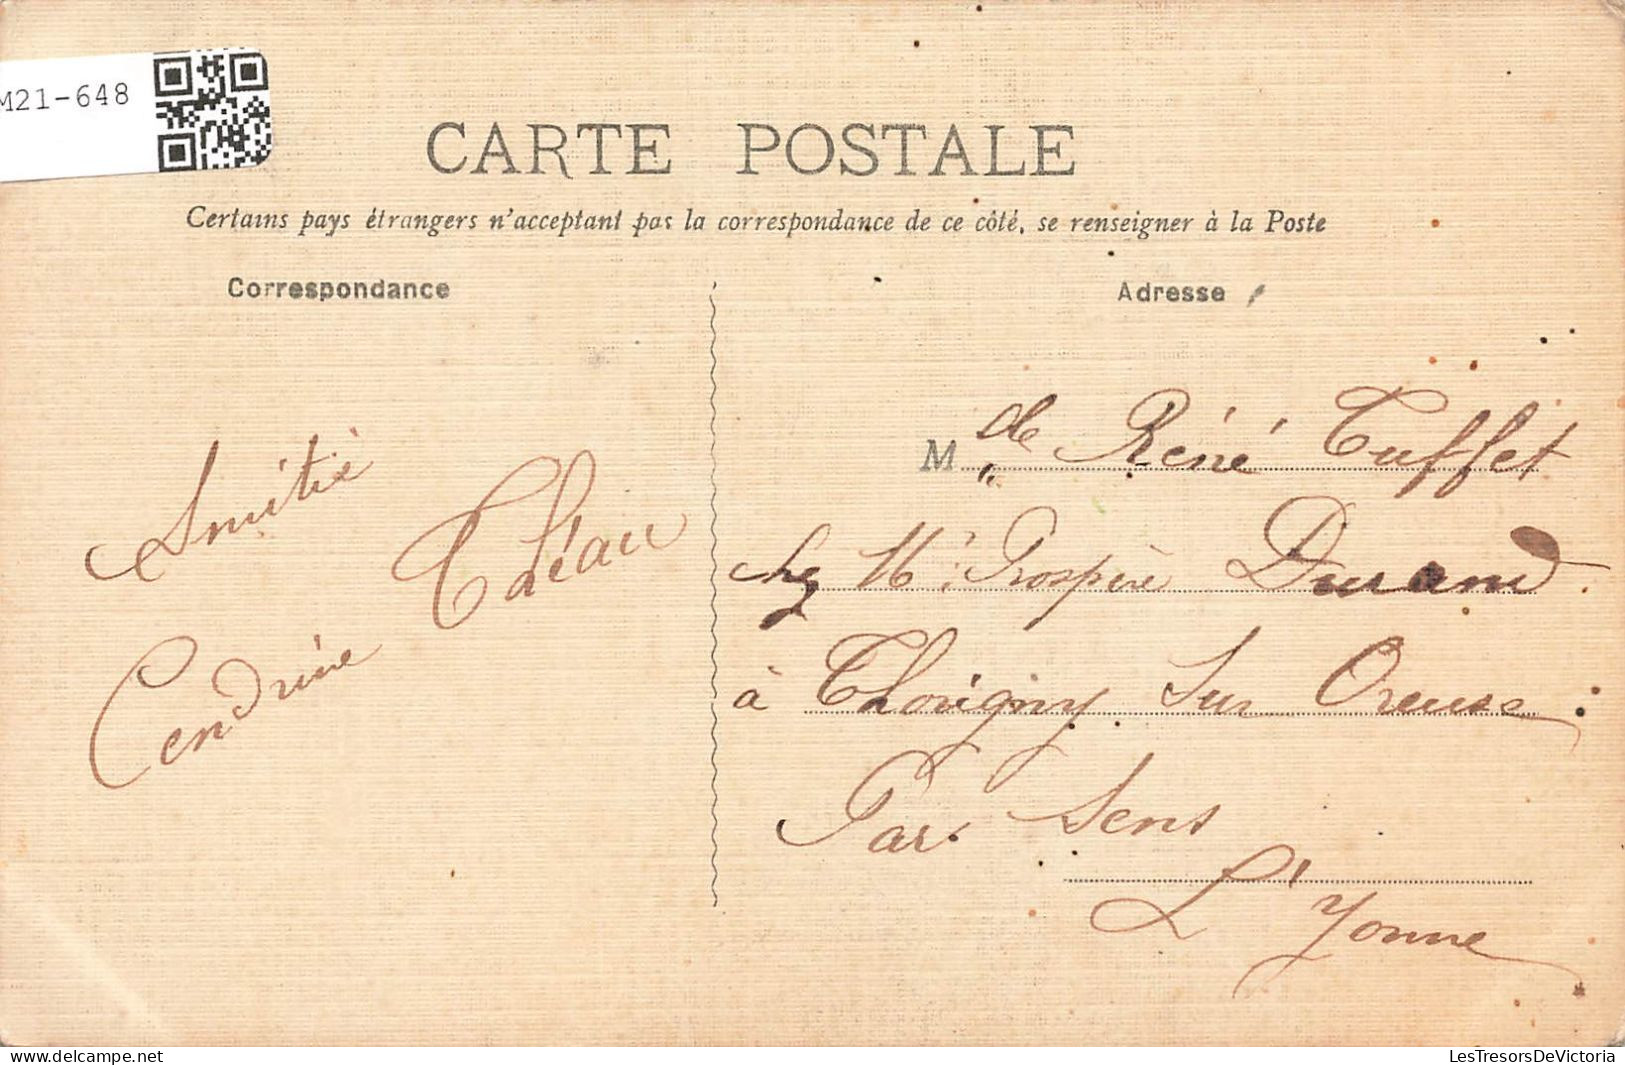 M21-648
CARTE POSTALE
Certains pays étrangers n'acceptant pas la correspondance de ce côté, se renseigner à la Poste
Correspondance
Amitié
Théau
Cendrine
Adresse
Mdle Réné Tuffet
chez Mr Prospère Durand
à Thorigny Sur Oreuse
Par Sens
L'Yonne
LesTresorsDeVictoria